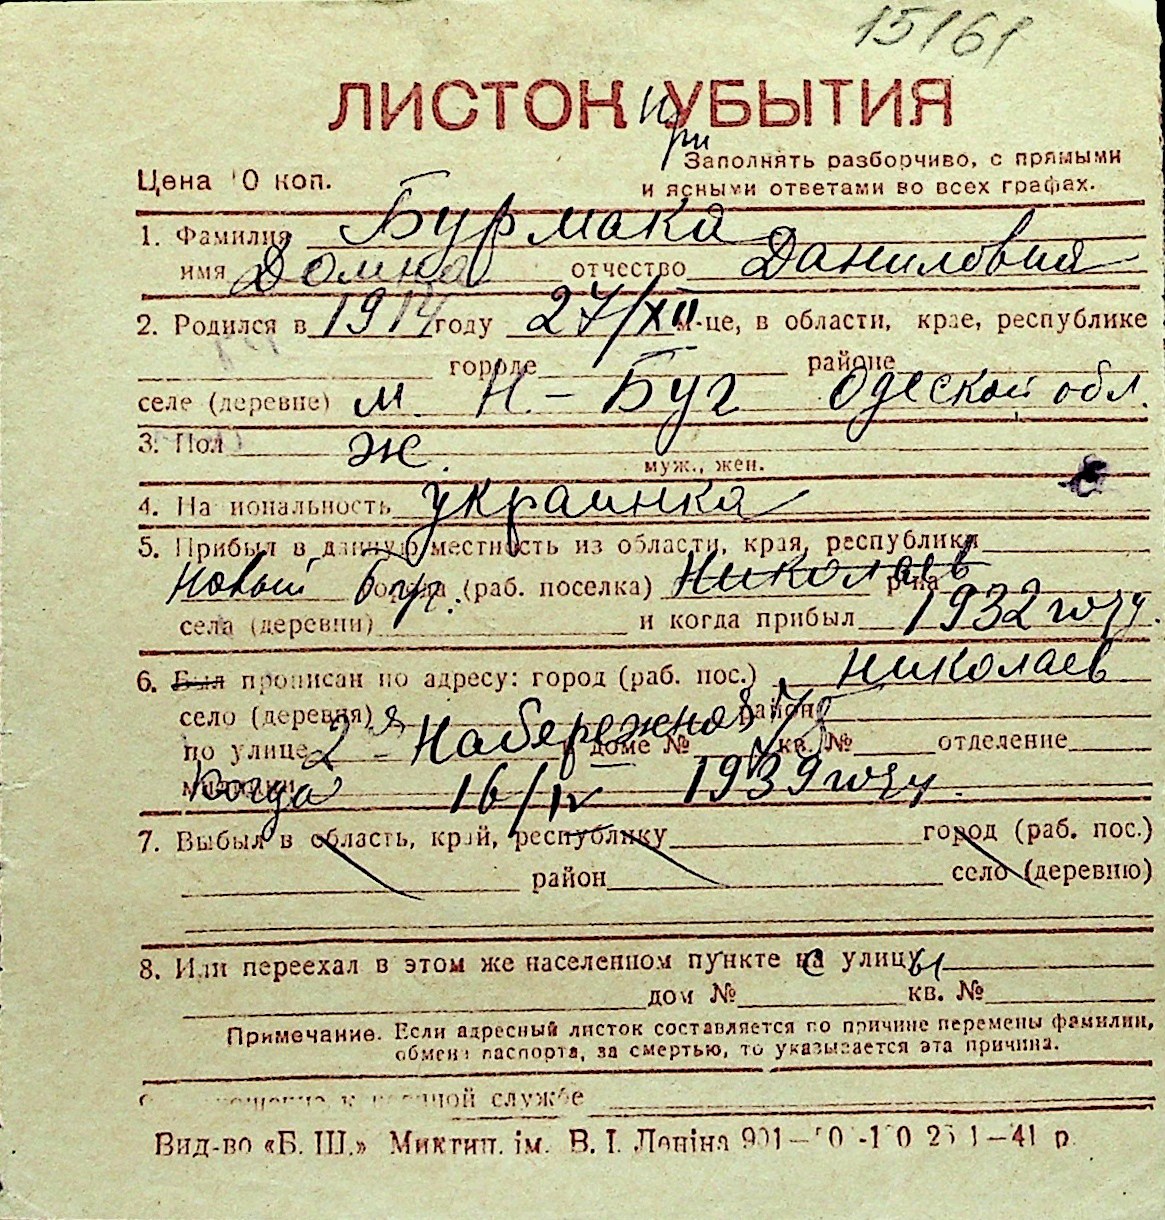 15161
ЛИСТОК УБЫТИЯ
при
Заполнять разборчиво, с прямыми
Цена 10 коп. и ясными ответами во всех графах.
1. Фамилия Бурмака
имя Домна отчество Даниловна
2. Родился в 1914 году 27/XII м-це, в области, крае, республике
городе районе
селе (деревне) м. Н.-Буг Одеской обл.
3. Пол ж.
муж., жен.
4. Национальность украинка
5. Прибыл в данную местность из области, края, республики
Новый Буг. города (раб. поселка) Николаев р-на
села (деревни) и когда прибыл 1932 году.
6. Был прописан по адресу: город (раб. пос.) Николаев
село (деревня) район
по улице 2я - Набережной доме № 7/8 кв. № отделение
милиции когда 16/IV 1939 году.
7. Выбыл в область, край, республику город (раб. пос.)
район село (деревню)
8. Или переехал в этом же населенном пункте с улицы
дом № кв. №
Примечание. Если адресный листок составляется по причине перемены фамилии,
обмена паспорта, за смертью, то указывается эта причина.
к военной службе
Вид-во «Б. Ш.» Миктип. ім. В. І. Леніна 41 р.